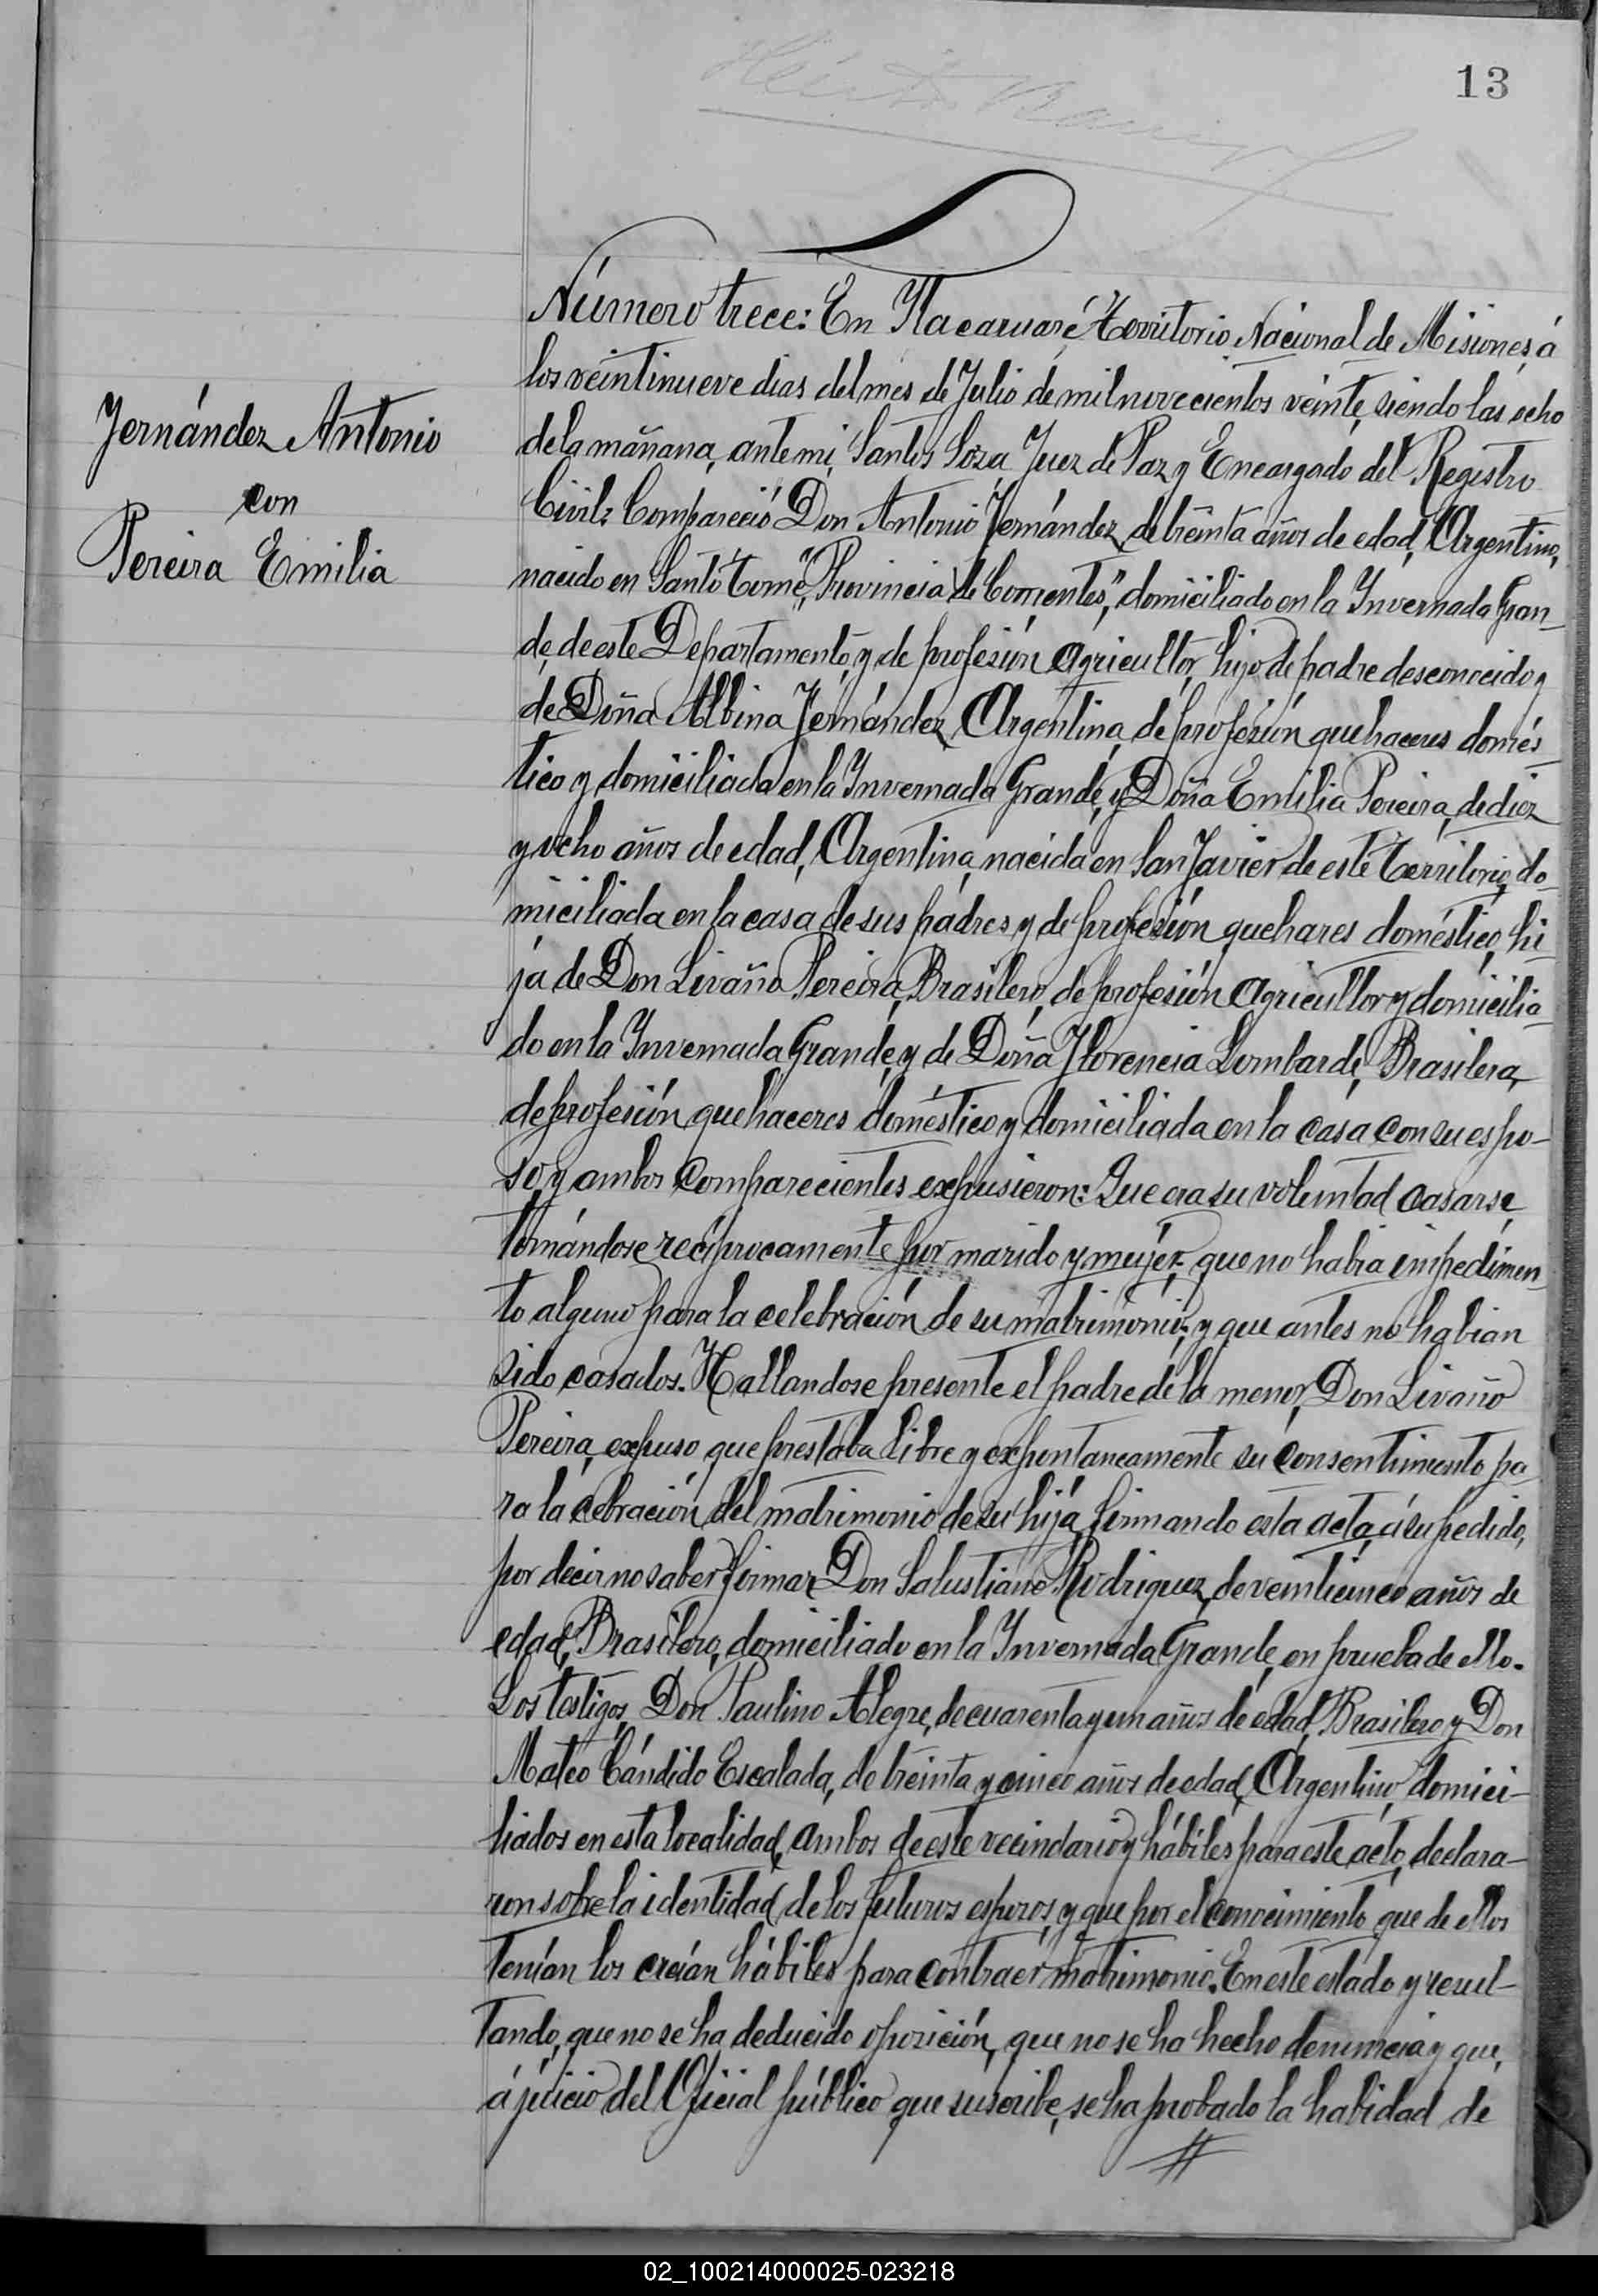 13
Fernández Antonio
con
Pereira Emilia
Número trece: En Itacaruaré Territorio Nacional de Misiones, á
los veintinueve dias del mes de Julio de mil novecientos veinte, siendo las ocho
de la mañana, ante mi, Santos Soza, Juez de Paz y Encargado del Registro
Civil: Compareció Don Antonio Fernández, de treinta años de edad, Argentino,
nacido en Santo Tomé, "Provincia de Corrientes," domiciliado en la Invernada Gran-
de, de este Departamento, y de profesión agricultor, hijo de padre desconocido y
de Doña Albina Fernández, Argentina, de profesión quehaceres domés-
tico y domiciliada en la Invernada Grande, y Doña Emilia Pereira, de diez
y ocho años de edad, Argentina, nacida en San Javier de este Territorio, do-
miciliada en la casa de sus padres y de profesión quehares doméstico, hi-
ja de Don Livaño Pereira, Brasilero, de profesión agricultor y domicilia-
do en la Invernada Grande, y de Doña Florencia Lombarde, Brasilera,
de profesión quehaceres doméstico y domiciliada en la casa con su espo-
so y ambos comparecientes expusieron: Que era su voluntad casarse,
tomándose recíprocamente por marido y mujer, que no habia impedimen-
to alguno para la celebración de su matrimonio; y que antes no habian
sido casados. Hallandose presente el padre de la menor, Don Livaño
Pereira, expuso que prestaba libre y expontaneamente su consentimiento pa
ra la cebración del matrimonio de su hija, firmando esta acta, á su pedido,
por decir no saber firmar Don Salustiano Rodriguez, de veinticinco años de
edad, Brasilero, domiciliado en la Invernada Grande, en prueba de ello.
Los testigos, Don Paulino Alegre, de cuarenta y un años de edad, Brasilero y Don
Mateo Cándido Escalada, de treinta y cinco años de edad, Argentino, domici-
liados en esta localidad, ambos de este vecindario y hábiles para este acto, declara-
ron sobre la identidad de los futuros esposos, y que por el conocimiento que de ellos
tenían los creían hábiles para contraer matrimonio. En este estado y resul-
tando, que no se ha deducido oposición, que no se ha hecho denuncia y que,
á juicio del Oficial público que suscribe, se ha probado la habidad de
02_100214000025-023218